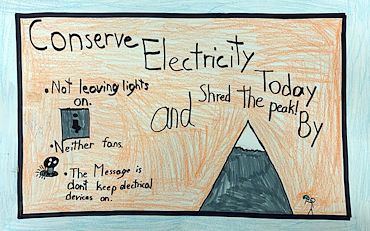 Conserve Electricity Today
and Shred The peak! By
• Not leaving lights
on.
• Neither fans.
• The Message is
don't keep electrical
devices on.